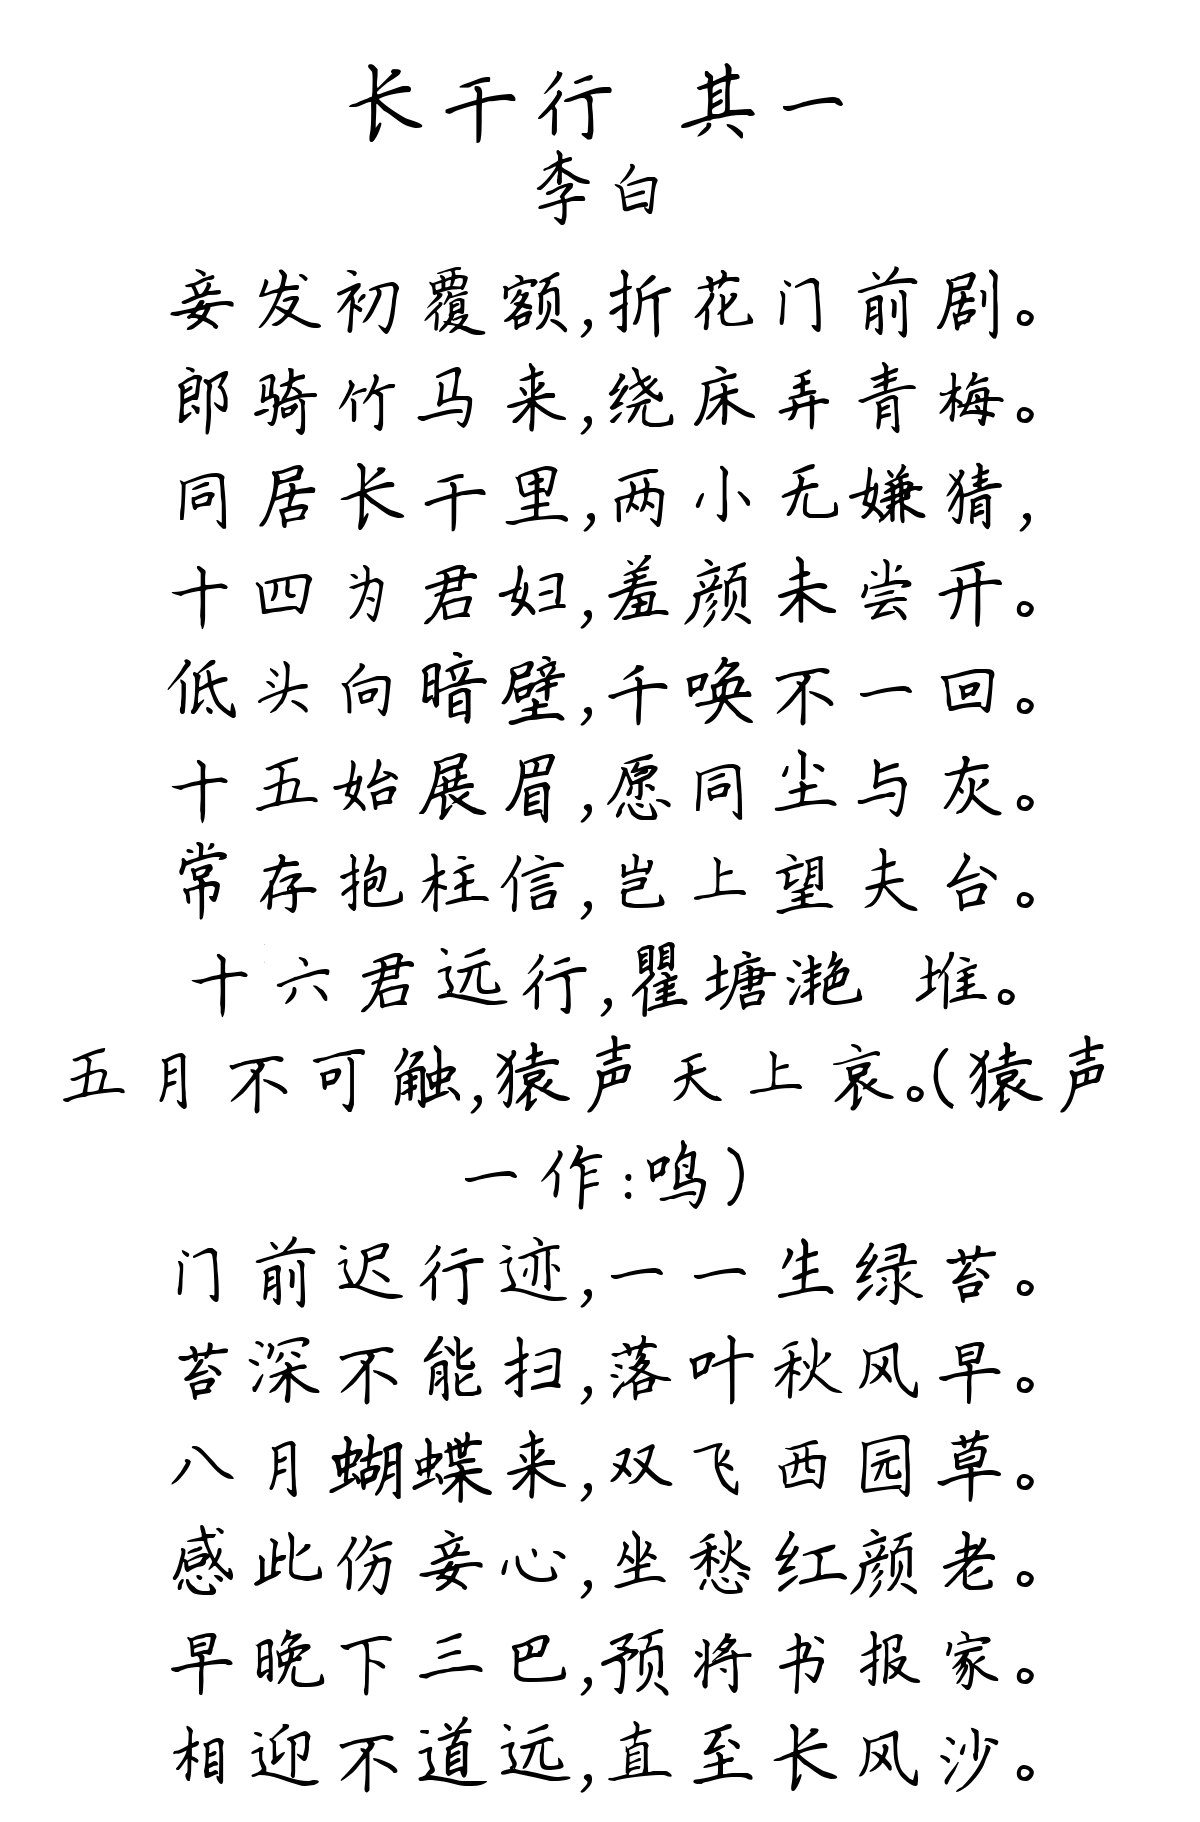 长干行 其一
李白
妾发初覆额,折花门前剧。
郎骑竹马来,绕床弄青梅。
同居长干里,两小无嫌猜,
十四为君妇,羞颜未尝开。
低头向暗壁,千唤不一回。
十五始展眉,愿同尘与灰。
常存抱柱信,岂上望夫台。
十六君远行,瞿塘滟 堆。
五月不可触,猿声天上哀。(猿声
一作:鸣)
门前迟行迹,一一生绿苔。
苔深不能扫,落叶秋风早。
八月蝴蝶来,双飞西园草。
感此伤妾心,坐愁红颜老。
早晚下三巴,预将书报家。
相迎不道远,直至长风沙。